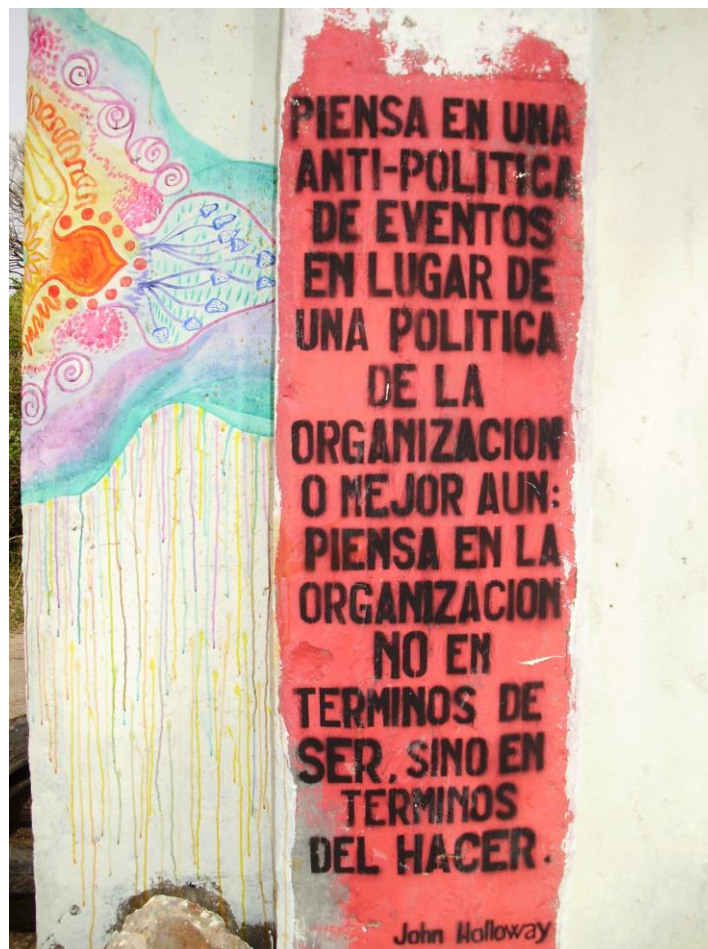 PIENSA EN UNA
ANTI-POLITICA
DE EVENTOS
EN LUGAR DE
UNA POLITICA
DE LA
ORGANIZACION
O MEJOR AUN:
PIENSA EN LA
ORGANIZACION
NO EN
TERMINOS DE
SER, SINO EN
TERMINOS
DEL HACER.
John Holloway